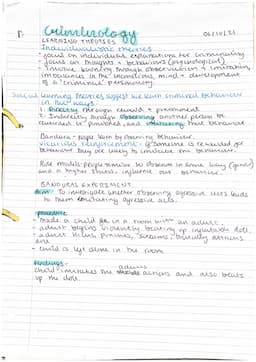 Criminology
06/10/21
LEARNING THEORIES
Individualistic theories
- focus on individual explanations for criminality
- focus on thoughts + behaviours (psychological)
- involve learning through observation + imitating,
importance in the emotions, mind + development
of a 'criminal' personality
Social learning theories suggest we learn criminal behaviour
in two ways.
1. Directly through reward + punishment
2. Indirectly through observing another person be
rewarded or punished, and imitating that behaviour
Bandura - people learn by observing behaviour.
Vicarious reinforcement - if someone is rewarded for
behaviour they are likely to imitate the behaviour.
Role models - people similar to observer in some way (gender)
and a higher status, influence our behaviour.
BANDURAS EXPERIMENT
Aim - To investigate whether observing aggressive acts leads
to them imitating agressive acts.
procedure
- made a child be in a room with an adult.
- adult begins violently beating up inflatable doll.
- adult kicks, punches, 'screams',
- child is left alone in the room
findings-
child imitates the adults actions and also beats
up the doll.